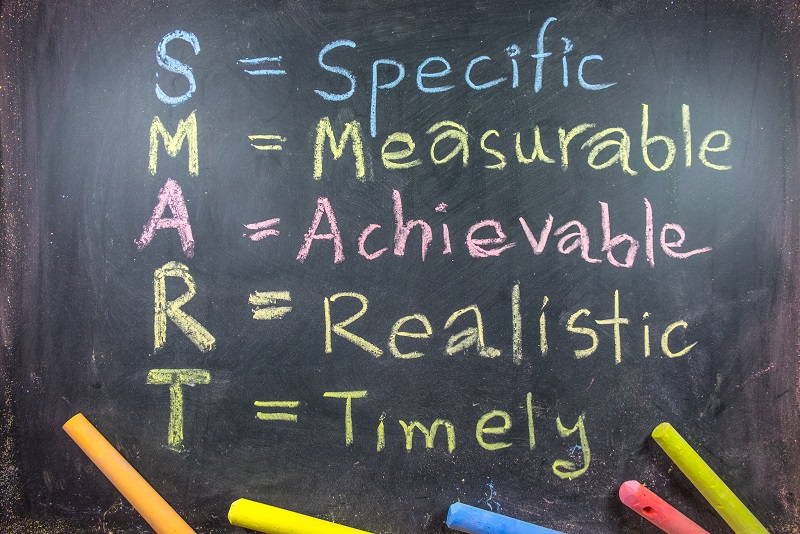 S = Specific
M = Measurable
A = Achievable
R = Realistic
T = Timely